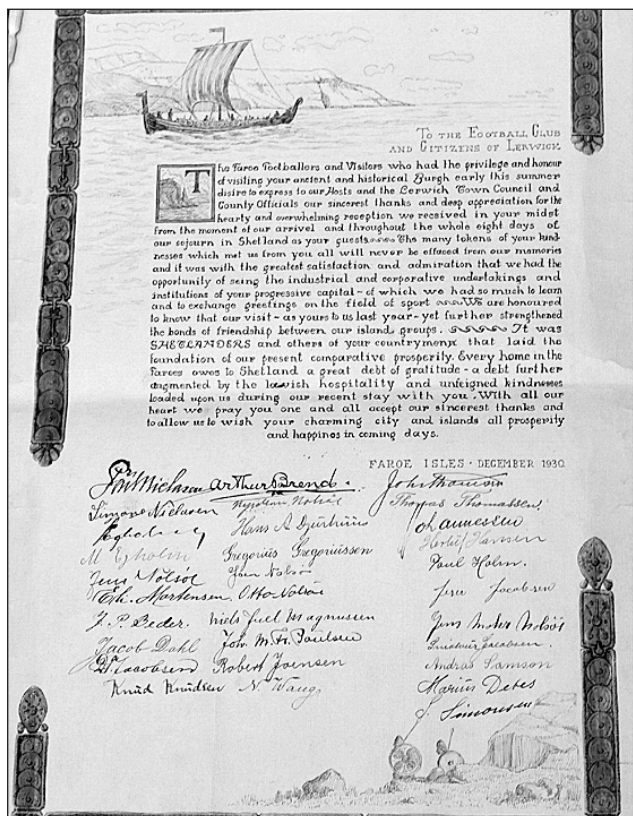 To the Football Club
and Citizens of Lerwick
The Faroe Footballers and Visitors who had the privilege and honour
of visiting your ancient and historical Burgh early this summer
desire to express to our Hosts and the Lerwick Town Council and
County Officials our sincerest thanks and deep appreciation for the
hearty and overwhelming reception we received in your midst
from the moment of our arrival and throughout the whole eight days of
our sejourn in Shetland as your guests The many tokens of your kind-
nesses which met us from you all will never be effaced from our memories
and it was with the greatest satisfaction and admiration that we had the
opportunity of seing the industrial and corporative undertakings and
institutions of your progressive capital - of which we had so much to learn
and to exchange greetings on the field of sport We are honoured
to know that our visit - as yours to us last year - yet further strengthened
the bonds of friendship between our island groups. It was
SHETLANDERS and others of your countrymen that laid the
foundation of our present comparative prosperity. Every home in the
Faroes owes to Shetland a great debt of gratitude - a debt further
augmented by the lawish hospitality and unfeigned kindness
loaded upon us during our recent stay with you. With all our
heart we pray you one and all accept our sincerest thanks and
to allow us to wish your charming city and islands all prosperity
and happines in coming days.
FAROE ISLES · DECEMBER 1930
Poul Niclasen Arthur Brend. John Thomsen
Simone Nielsen Nolsöe Thomas Thomassen.
Hans A Djurhuus Johannesen
M Egholm Gregorius Gregoriussen Hansen
Jens Nolsöe Nolsöe Poul Holm.
Erh. Mortensen. Otto Nolsöe Jens Jacobsen
J. P. Beder. Niels Juel Magnussen Jens Nolsöe
Jacob Dahl Joh. M. Fr. Poulsen Jacobsen.
Jacobsen Robert Joensen Andras Samson
Knud Knudsen N. Waag Marius Debes
J. Simonsen